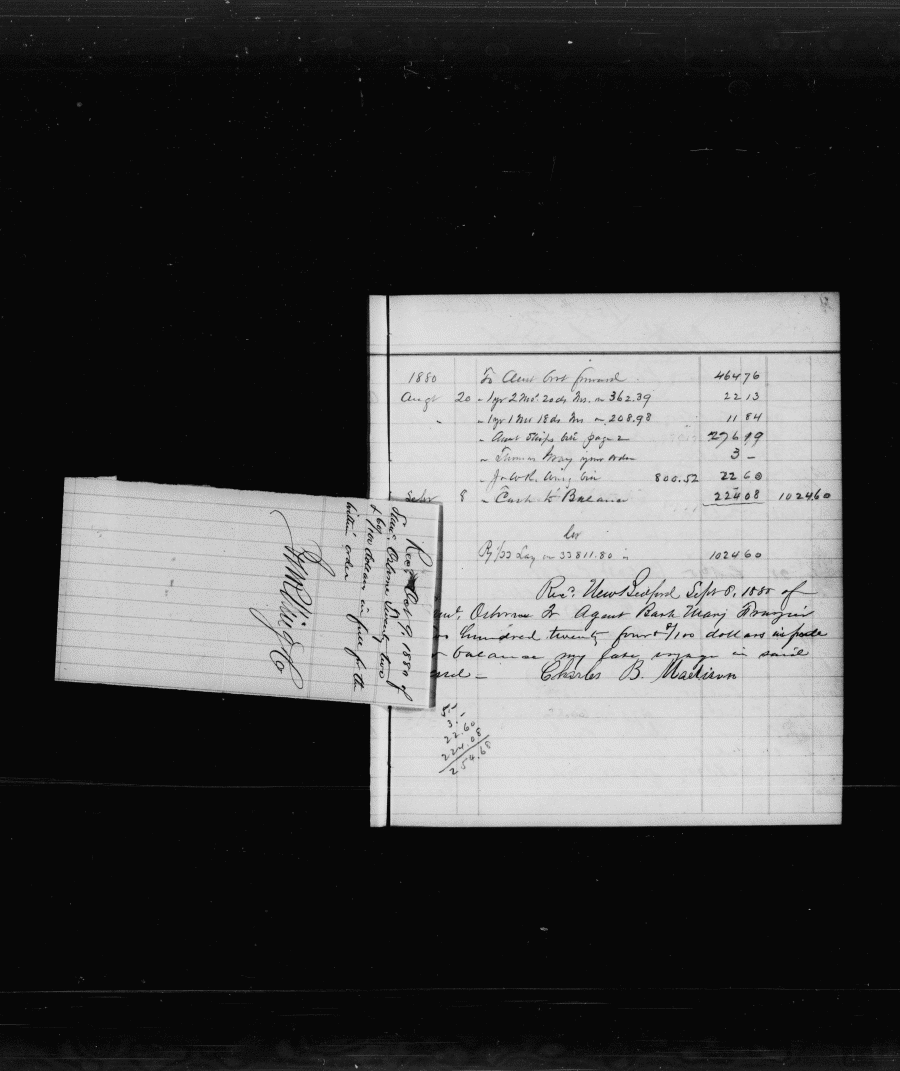 1880 To Amt brot forward 464 76
Augt 20 " 1 yr 2 Mos. 20 ds Ins. on 362.39 22 13
" " 1 yr 1 Mo 18 ds Ins on 208.98 11 84
" Amt Ships bill page 2 276 19
" Thomas your order 3 –
" J & W.R. Wing bill 800.52 22 60
Septr 8 " Cash to Balance 224 08 1024 60
Cr
By 1/33 Lay on 33811.80 is 1024 60
Recd. New Bedford Sept 8, 1880 of
Osborne Jr Agent Bark Mary Frazier
hundred twenty four 8/100 dollars in full
balance my late voyage in said
Charles B. Madison
5.–
3.–
22.60
224.08
254.68
Recd Oct 9, 1880 of
Saml. Osborne Jr Twenty two
& 60/100 dollars in full for the
within order
J & W R Wing & Co